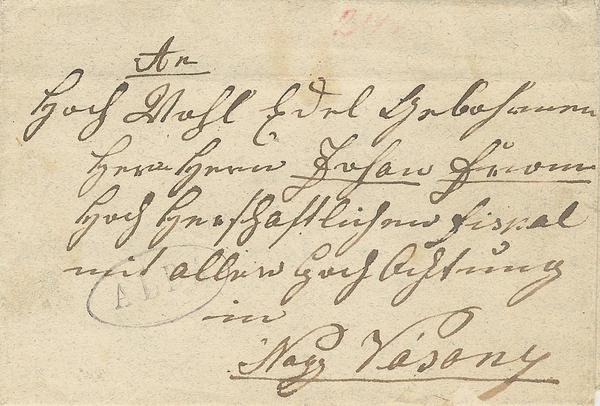 An
Hoch Wohl Edel Gebohrnen
Herrn Herrn Johan
Hoch Herschaftlichen Fiskal
mit aller Hoch Achtung
in
Nagy Vásony